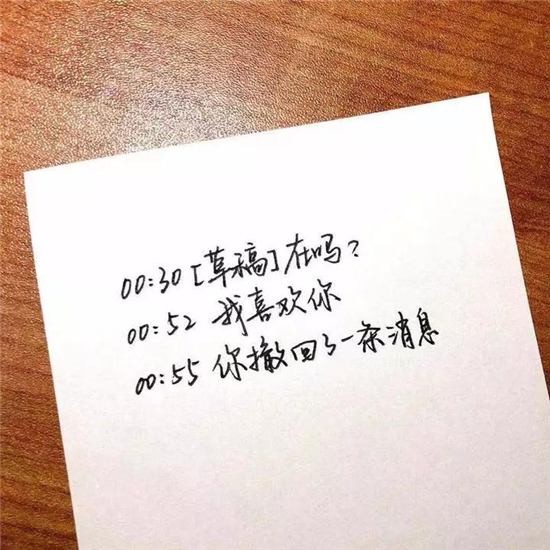 00:30 [草稿] 在吗?
00:52 我喜欢你
00:55 你撤回了一条消息